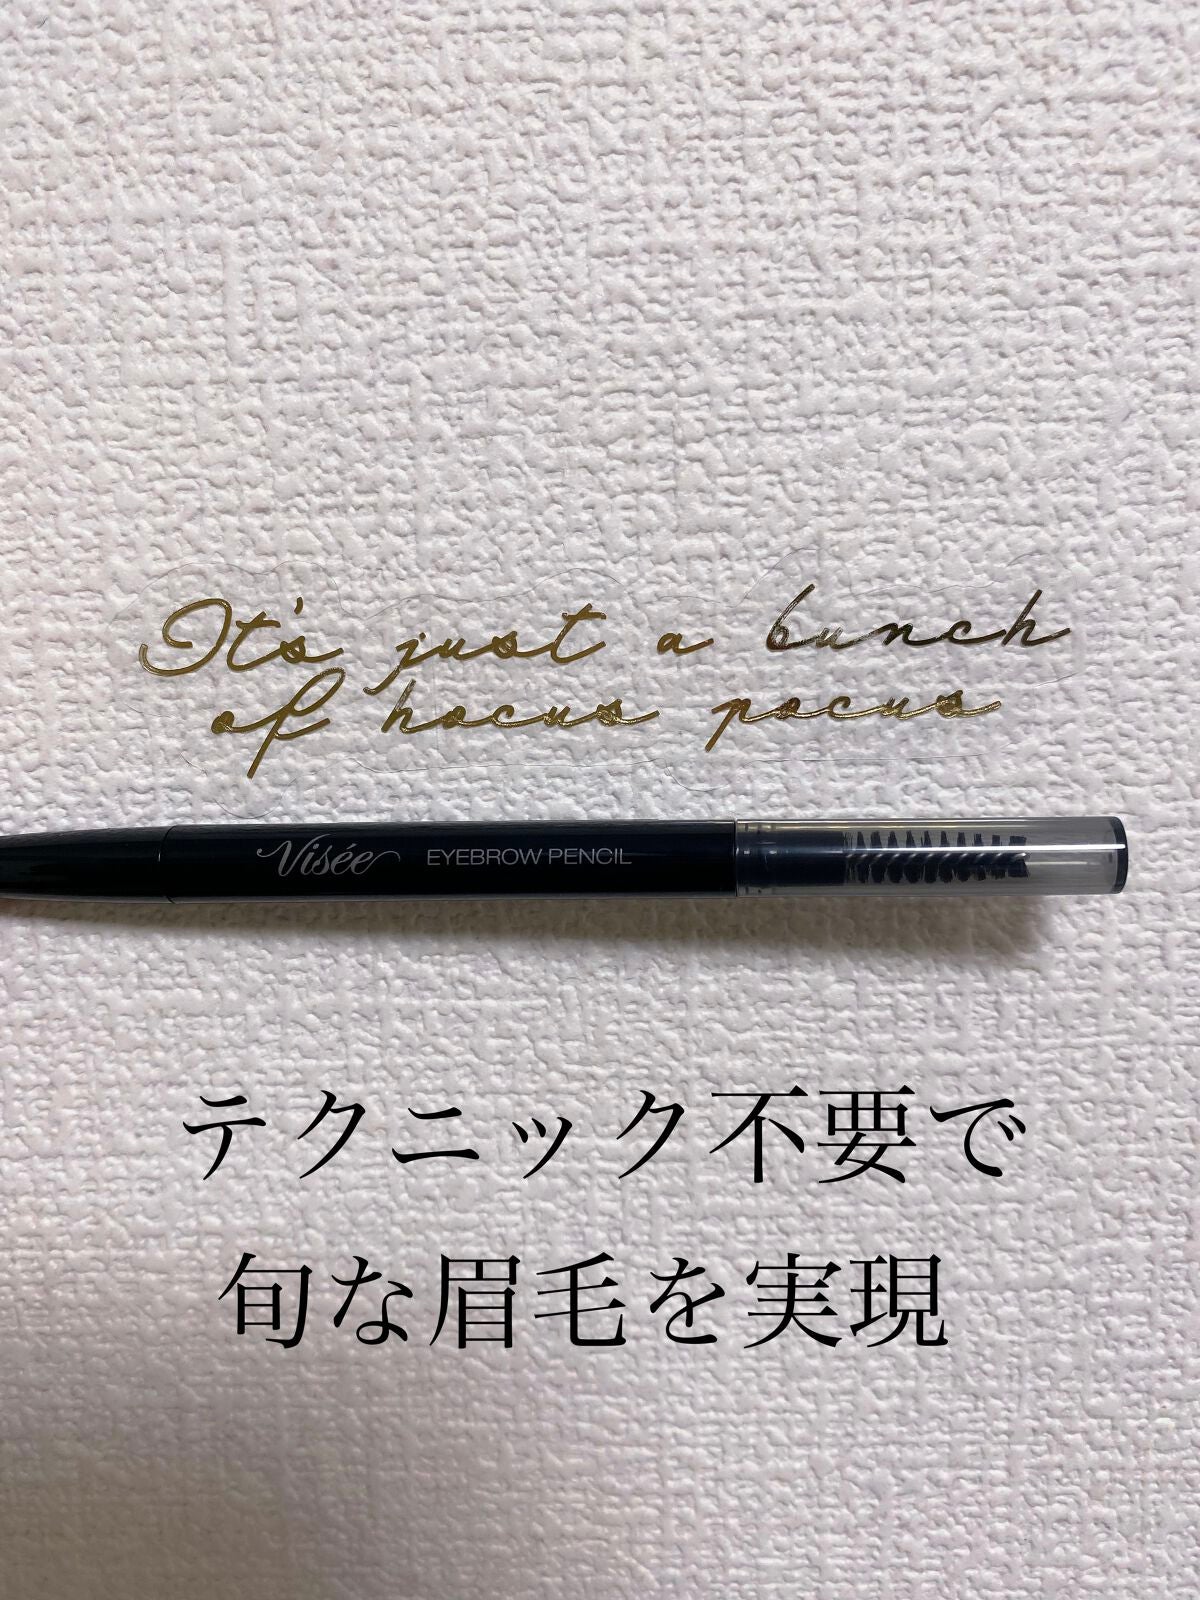 It's just a bunch
of hocus pocus
Visée EYEBROW PENCIL
テクニック不要で
旬な眉毛を実現